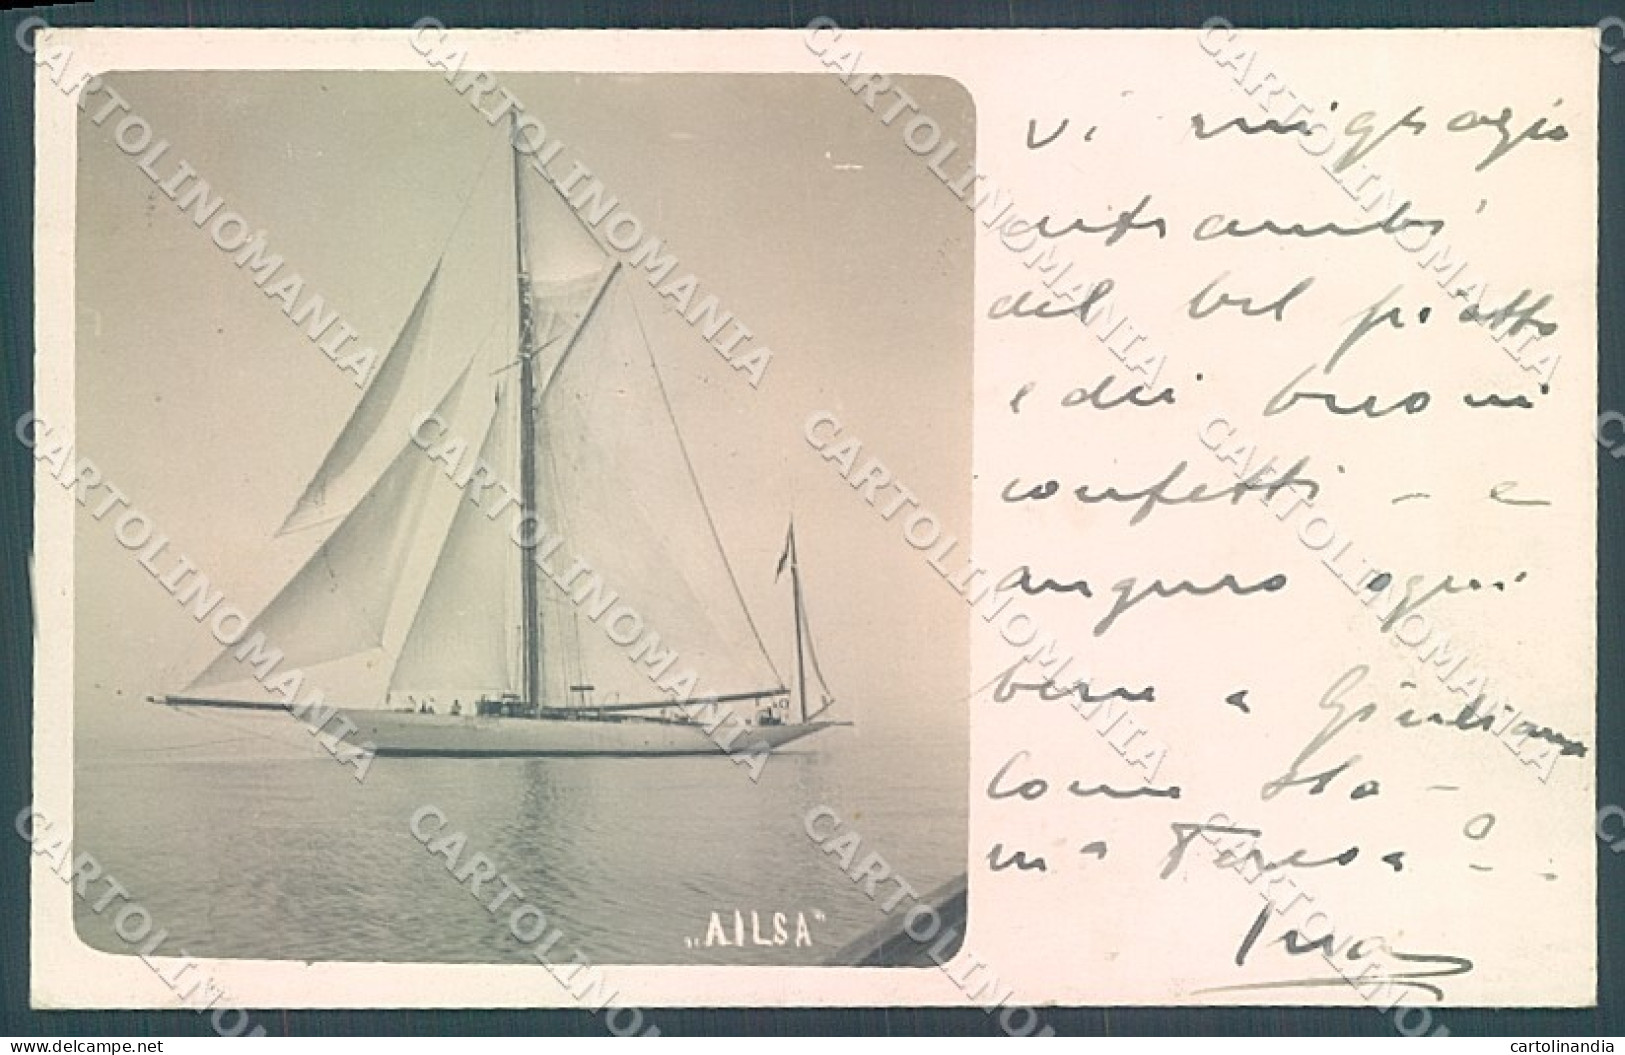 „AILSA"
vi ringrazio
entrambi
del bel piatto
e dei buoni
confetti - e
auguro ogni
bene a Giuliana
Come sta -
ma Teresa ?
CARTOLINOMANIA
www.delcampe.net
cartolinandia